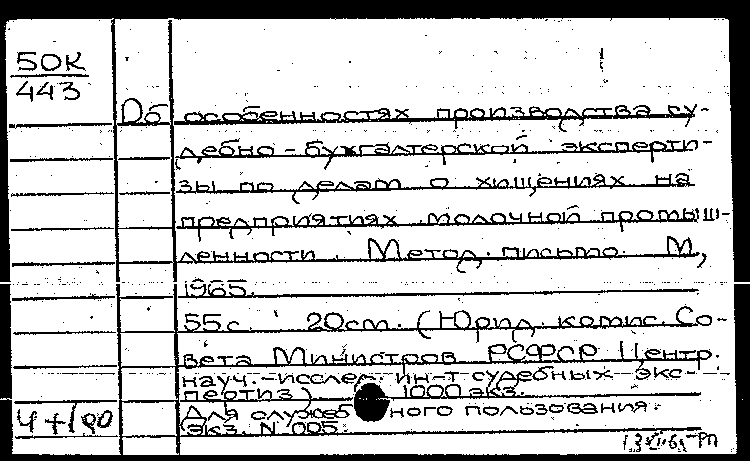 50К
443
Об особенностях производства су-
дебно-бухгалтерской эксперти-
зы по делам о хищениях на
предприятиях молочной промыш-
ленности. Метод. письмо. М,
1965.
55с. 20см. (Юрид. комис. Со-
вета Министров РСФСР Центр.
науч.-исслед. ин-т судебных экс-
пертиз) 1000 экз.
(Для служебного пользования.
экз. N 005.